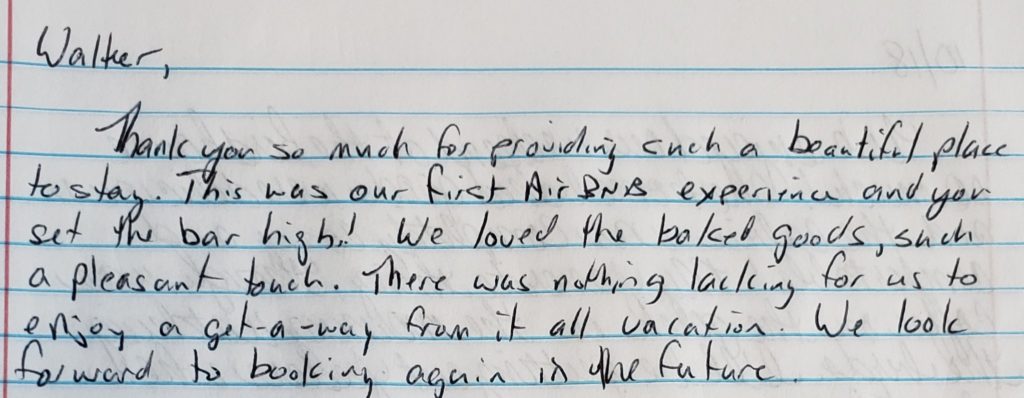 Walker,
Thank you so much for providing such a beautiful place
to stay. This was our first AirBNB experience and you
set the bar high! We loved the baked goods, such
a pleasant touch. There was nothing lacking for us to
enjoy a get-a-way from it all vacation. We look
forward to booking again in the future.